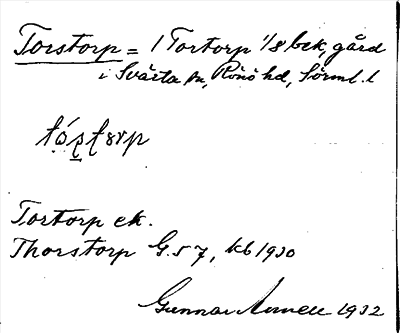 Torstorp = / Tortorp 1/8 bek, gård
i Svärta sn, Rönö hd, Sörml. l
Tortorp ek.
Thorstorp G.57, kb 1930
Gunnar 1932